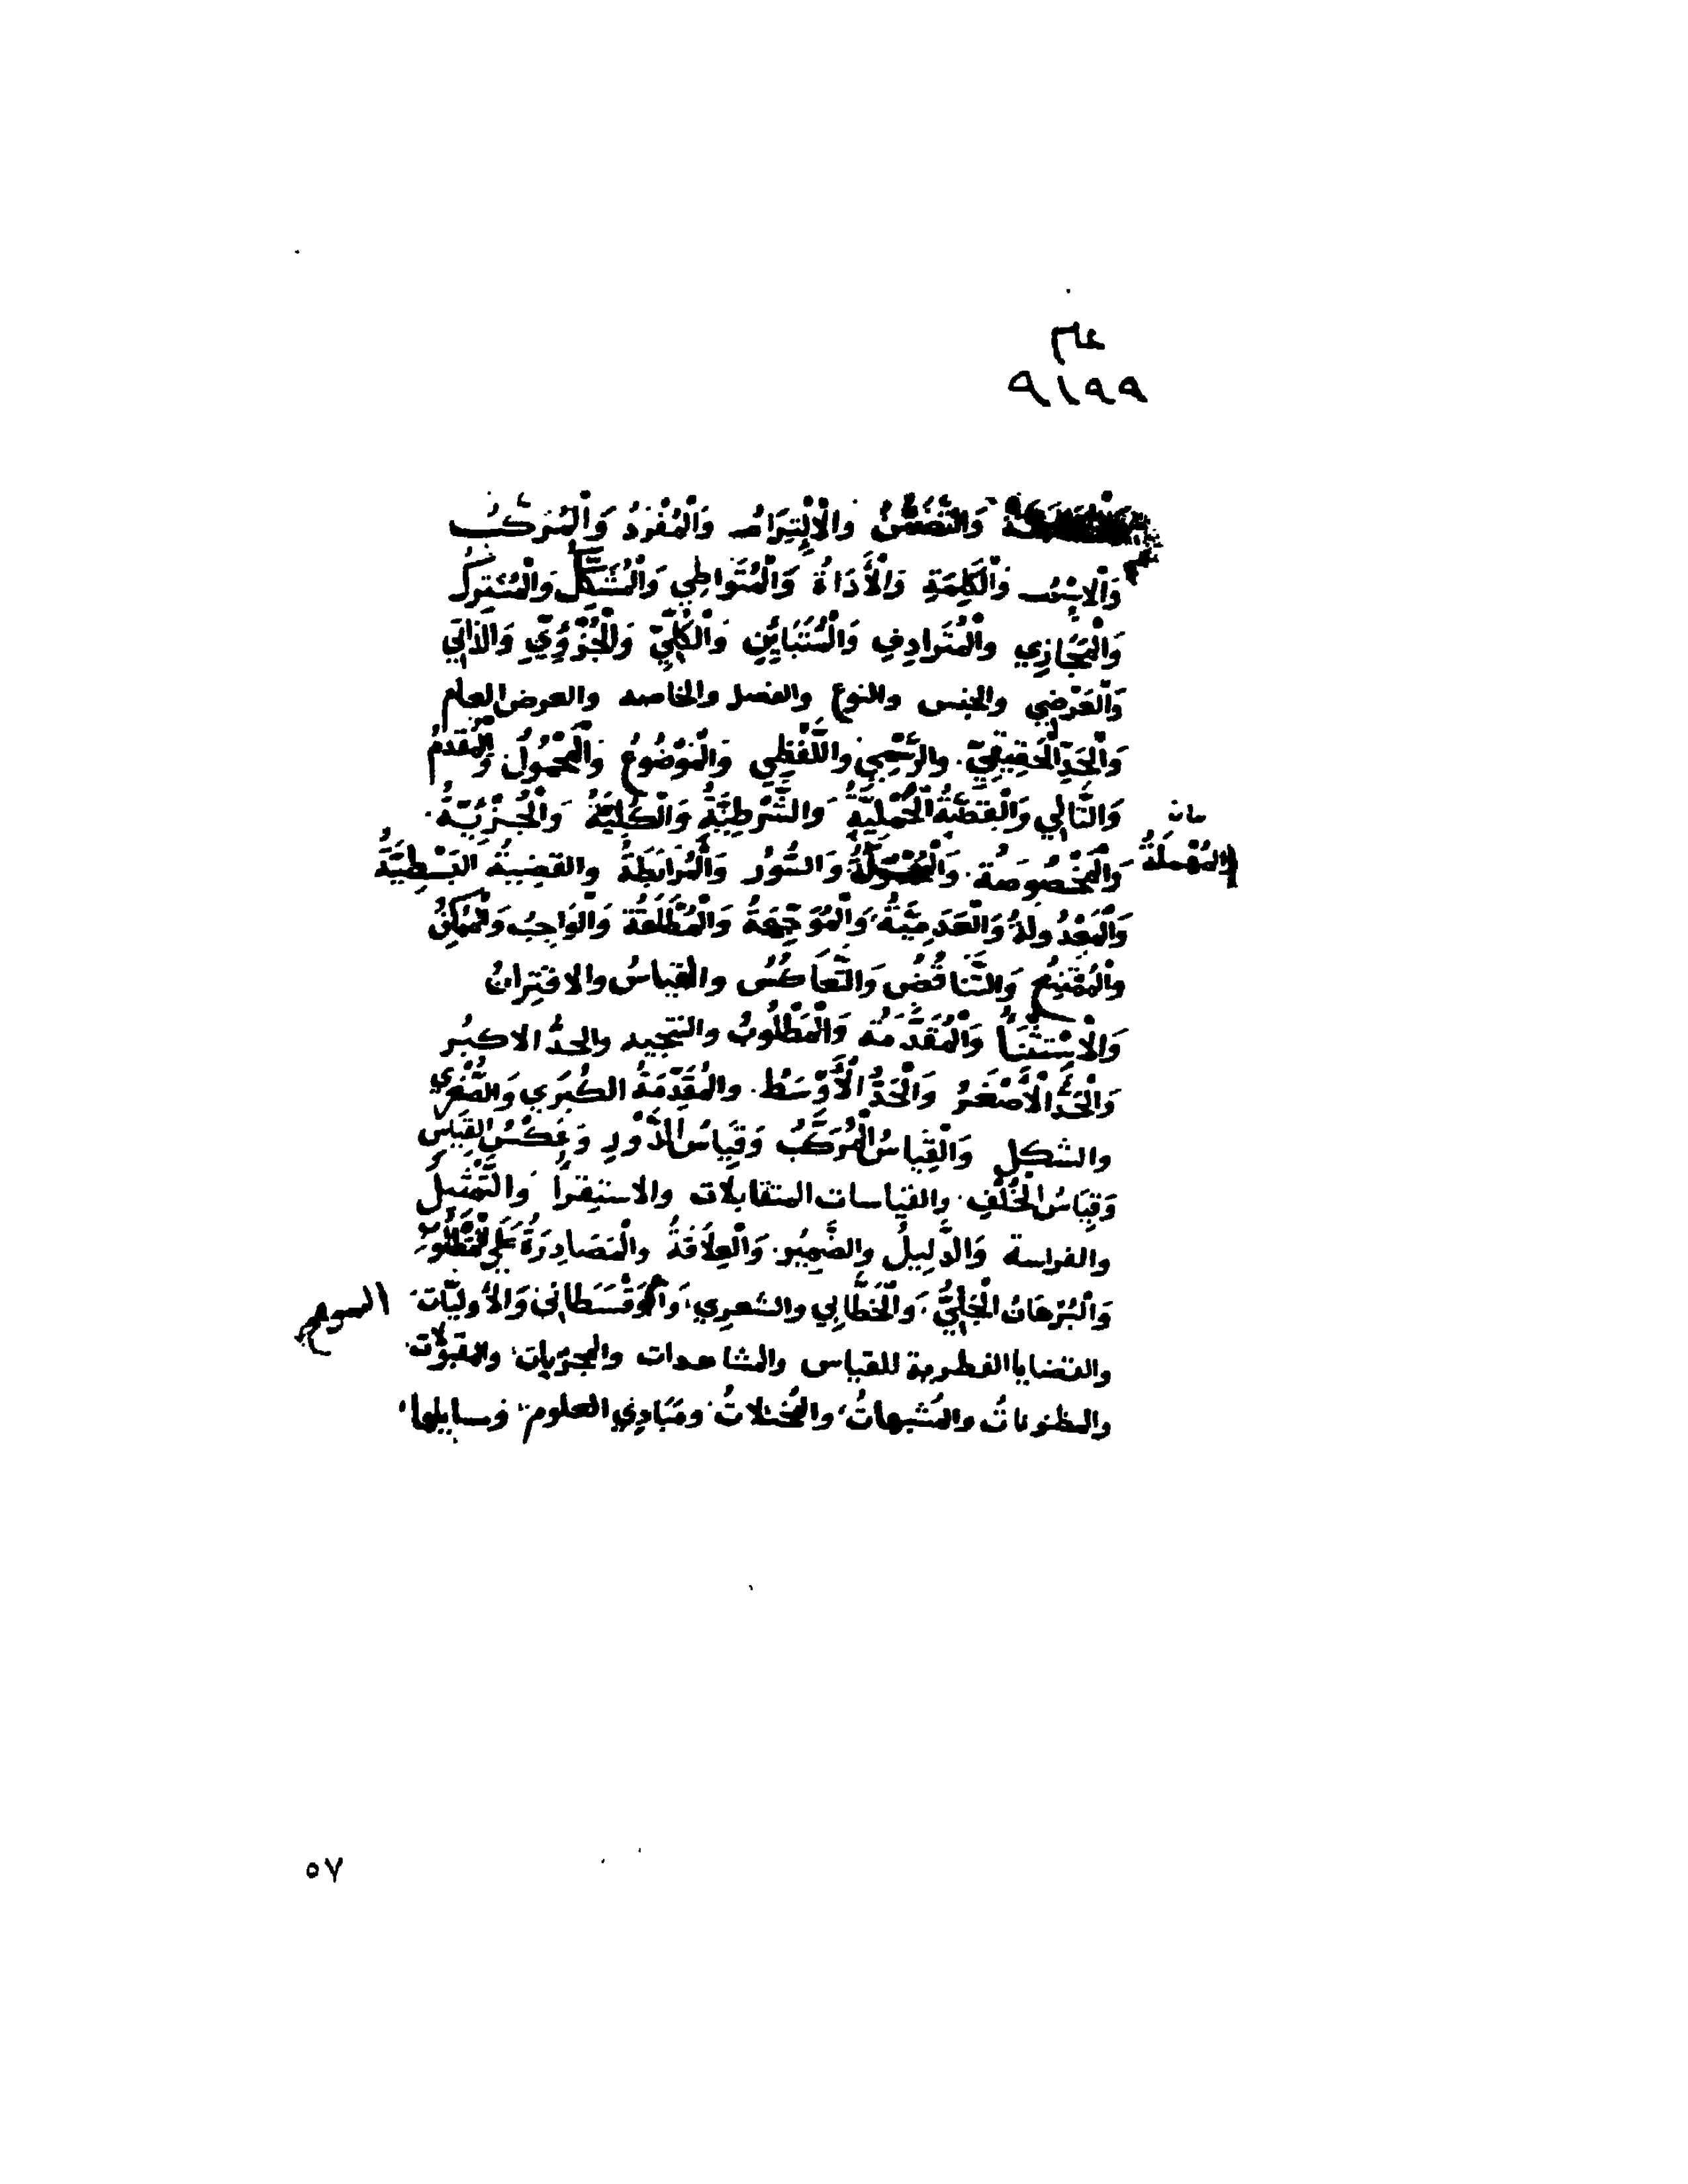 عام
٩١٩٩
وَالتَّضَمُّنُ والْاِلْتِزَام وَالْمُفْرَدُ وَالْمُرَكَّبُ
وَالاِسْمُ وَالْكَلِمَةِ وَالْأَدَاةُ وَالْمُتَوَاطِي وَالْمُشَكِّكُ وَالْمُشْتَرِكُ
وَالْمَجَازِي والْمُتَرَادِفِ وَالْمُتَبَايُنِ وَالْكُلِّيّ وَالْجُزْوِيِّ وَالذَّاتِي
وَالْعَرْضِي والجنس والنوع والفصل والخاصه والعرض العام
وَالْحَدِّ الْحَقِيقِيّ. والرَّسْمِيّ واللَّفْظِي وَالْمَوْضُوعُ وَالْمَحْمُولُ وَالْمُقَدَّمُ
وَالتَّالِي وَالْقَضِيَّةُ الْحَمْلِيَّةُ وَالشَّرْطِيَّةُ وَالْكُلِّيَّةُ وَالْجُزْئِيَّةُ.
والْمُهْمَلَةُ وَالْمَخْصُوصَةُ. وَالسُّورُ وَالْرَابِطَةُ والقضِيَةُ البَسْطِيَّةُ
وَالْمَعْدُولَةُ وَالْعَدَمِيَّةُ، وَالْمُوَجَّهَةُ وَالْمُطْلَقَةُ وَالْوَاجِبُ وَالْمُمْكِنُ
والْمُمْتَنِعُ وَالتَّنَاقُضُ وَالتَّعَاكُسُ والقياسُ والاقتِرانُ
وَالْاِسْتِثْنَأُ وَالْمُقَدَّمَةُ وَالْمَطْلُوبُ والنتجيه والحدُّ الاكبُر
وَالْحَدُّ الْأَصْغَرُ وَالْحَدُّ الْأَوْسَطُ. والمُقَدِّمَةُ الكُبَرَي وَالصُّغْرَي
والشكل وَالْقِيَاسُ الْمُرَكَّبُ وَقِيَاسُ الدَّوْرِ وَعَكْسُ القِيَاسِ
وَقِيَاسُ الْخُلْفِ. والقياسات المتقابلات والاستِقرأ وَالتَّمْثِيلُ
والفراسة وَالدَّلِيلُ والضَّمِيُر. وَالْعِلَاقَةُ والْمَصَادِرَةُ عَلَي الْمَطْلُوبِ
وَالْبُرْهَانُ الْجَلِيُّ، وَالْخَطَابِي والشعرِي، وَالأوليَّات.
والقضايا الفطرية للقياس والمشاهدات والمجرّبات والمقبولات
والمظنوناتُ والمُشبهاتُ، والمُخيلاتُ ومَبَادِي العلوم، ومسايلها،
٥٧